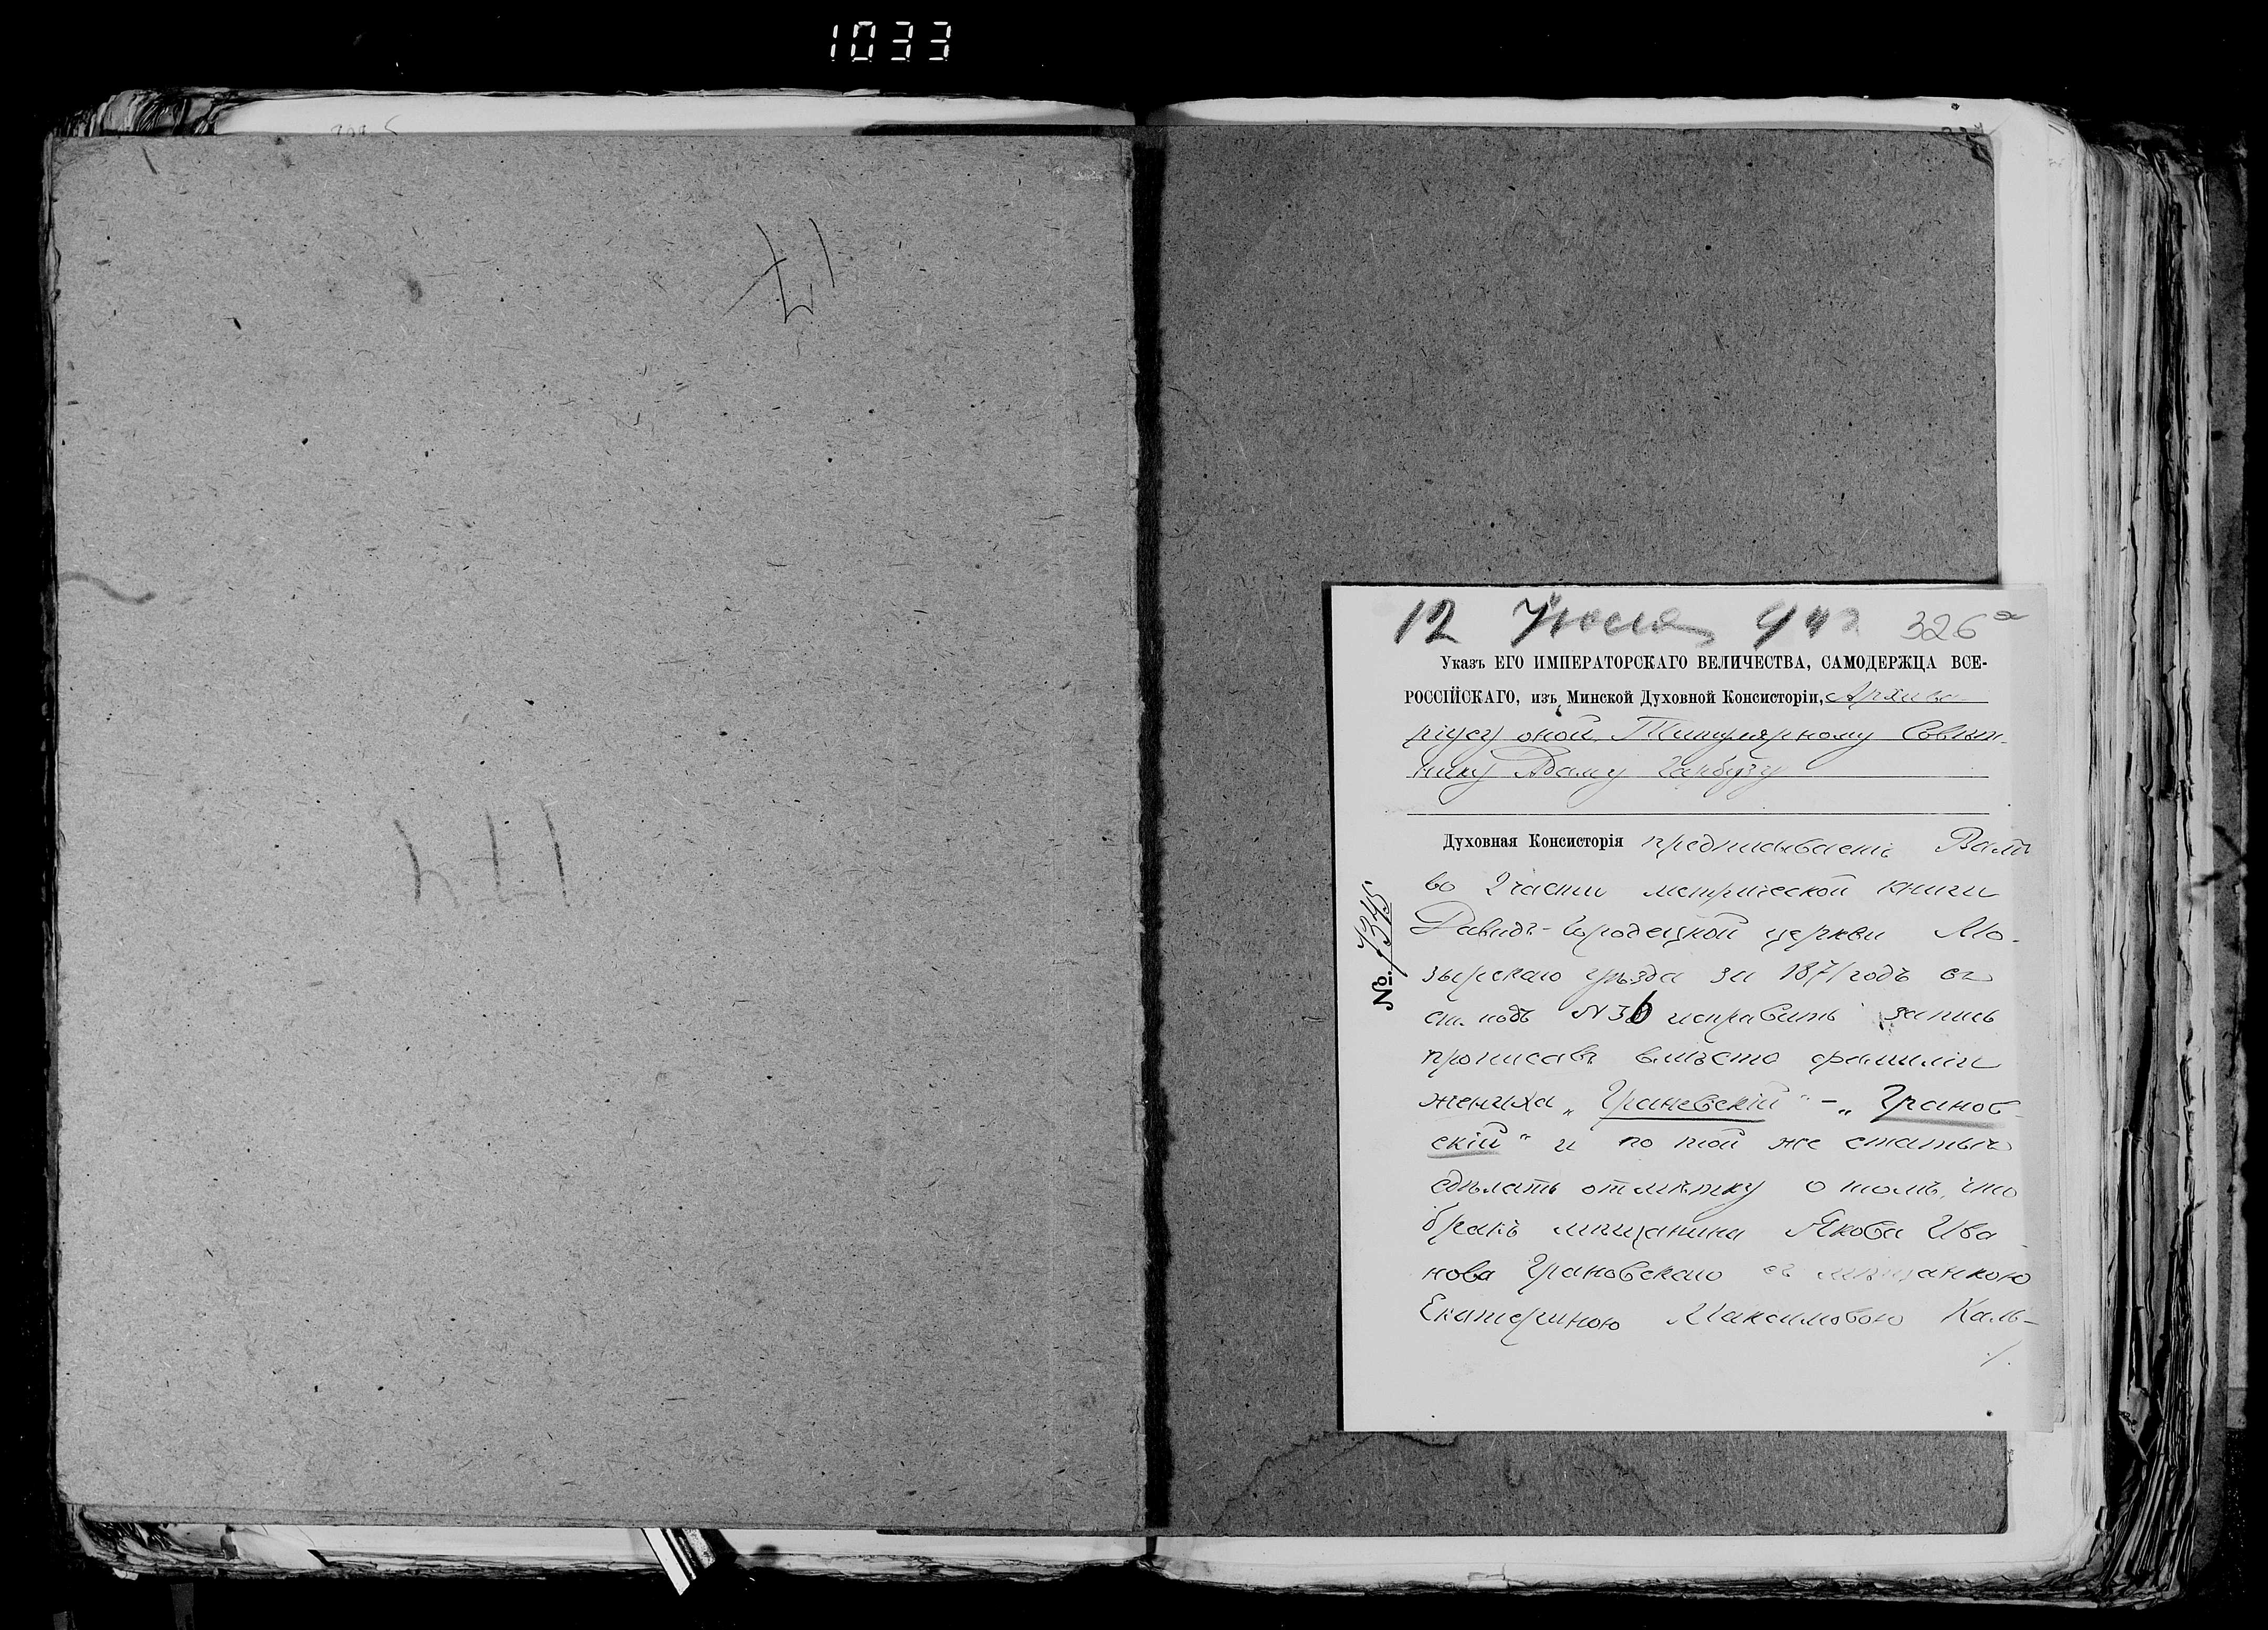 1033
17
174
12 Июля 326
Указъ ЕГО ИМПЕРАТОРСКАГО ВЕЛИЧЕСТВА, САМОДЕРЖЦА ВСЕ-
РОССІЙСКАГО, изъ Минской Духовной Консисторіи, Архива-
ріусу оной Титулярному Совѣт-
нику Адаму Гарбузу
№ 7345
Духовная Консисторія предписываетъ Вамъ
во 2 части метрической книги
Давидъ-Городецкой церкви Мо-
зырскаго уѣзда за 1871 годъ въ
ст. подъ N 36 исправить запись
прописавъ вмѣсто фамиліи
жениха „Граневскій" - „Гранов-
скій" и по той же статьѣ
сдѣлать отмѣтку о томъ, что
бракъ мѣщанина Якова Ива-
нова Грановскаго съ мѣщанкою
Екатериною Максимовою Каль-